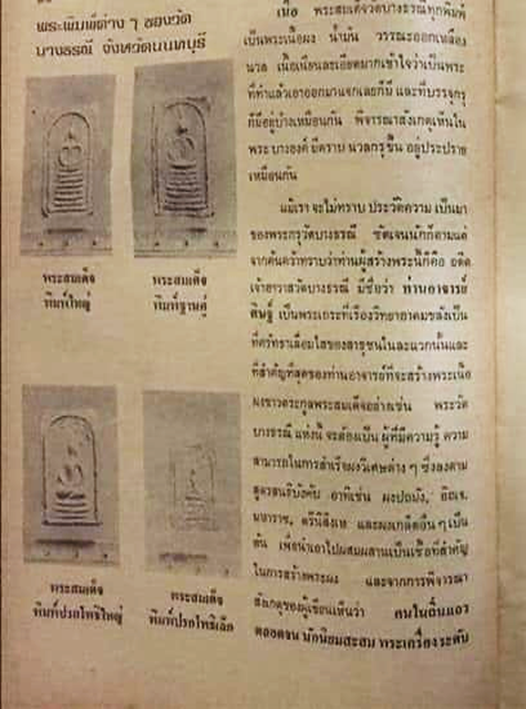 พระพิมพ์ต่าง ๆ ของวัด
บางธรณี จังหวัดนนทบุรี
พระสมเด็จ
พิมพ์ใหญ่
พระสมเด็จ
พิมพ์ฐานคู่
พระสมเด็จ
พิมพ์ปรกโพธิใหญ่
พระสมเด็จ
พิมพ์ปรกโพธิเล็ก
เนื้อ พระสมเด็จวัดบางธรณีทุกพิมพ์
เป็นพระเนื้อผง น้ำมัน วรรณะออกเหลือง
นวล เนื้อเนียนละเอียดมากเข้าใจว่าเป็นพระ
ที่ทำแล้วเอาออกมาแจกเลยก็มี และที่บรรจุกรุ
ก็มีอยู่บ้างเหมือนกัน พิจารณาสังเกตุเห็นใน
พระ บางองค์ มีคราบ นวลกรุขึ้น อยู่ประปราย
เหมือนกัน
แม้เรา จะไม่ทราบ ประวัติความ เป็นมา
ของพระกรุวัดบางธรณี ชัดเจนนักก็ตามแต่
จากค้นคว้าทราบว่าท่านผู้สร้างพระนี้ก็คือ อดีต
เจ้าอาวาสวัดบางธรณี มีชื่อว่า ท่านอาจารย์
ดิษฐ์ เป็นพระเถระที่เรืองวิทยาอาคมขลังเป็น
ที่ศรัทธาเลื่อมใสของสาธุชนในละแวกนั้นและ
ที่สำคัญที่สุดของท่านอาจารย์ที่จะสร้างพระเนื้อ
ผงขาวตระกูลพระสมเด็จอย่างเช่น พระวัด
บางธรณี แห่งนี้ จะต้องเป็น ผู้ที่มีความรู้ ความ
สามารถในการสำเร็จผงวิเศษต่าง ๆ ซึ่งลงตาม
สูตรสนธิบังคับ อาทิเช่น ผงปถมัง, อิธเจ,
มหาราช, ตรีนิสิงเห และผงเกล็ดอื่น ๆ เป็น
ต้น เพื่อนำเอาไปผสมผสานเป็นเชื้อที่สำคัญ
ในการสร้างพระผง และจากการพิจารณา
สังเกตุของผู้เขียนเห็นว่า คนในถิ่นแถว
ตลอดจน นักนิยมสะสม พระเครื่อง ระดับ